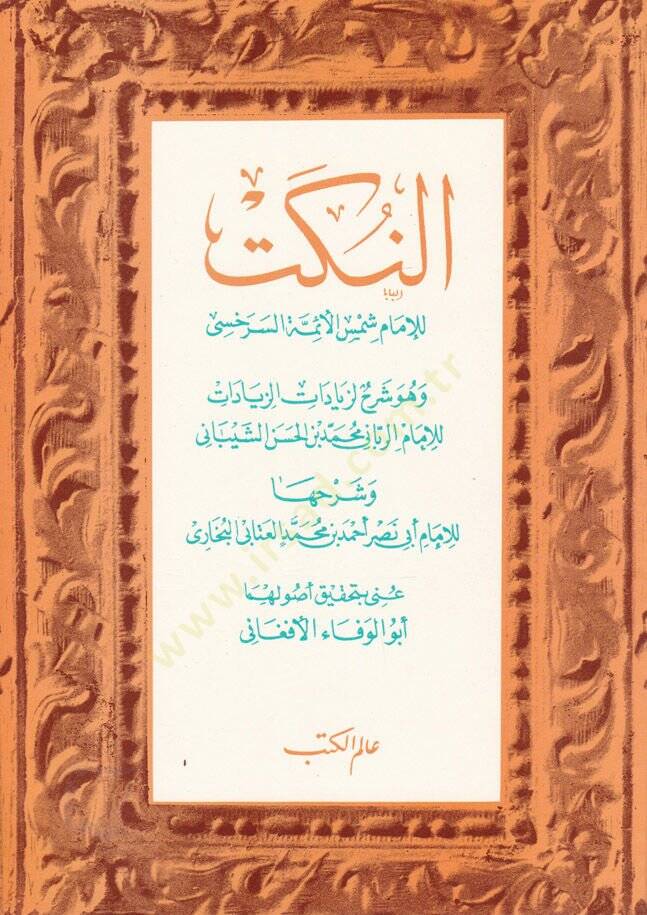 النُكَتْ
البابا
للإمام شمس الأئمة السرخسى
وَهُوَ شَرحٌ لزيَادَاتِ الزيَادَات
للإمام الربّانى محمّد بن الحسَن الشيبانى
وَشَرْحهَا
للإمام أبى نَصر أحمد بن محمَّد العتابى البخارى
عُنى بتحقيق أصُولهما
أبو الوفاء الأفغانى
عالم الكتب
www.irsad.com.tr